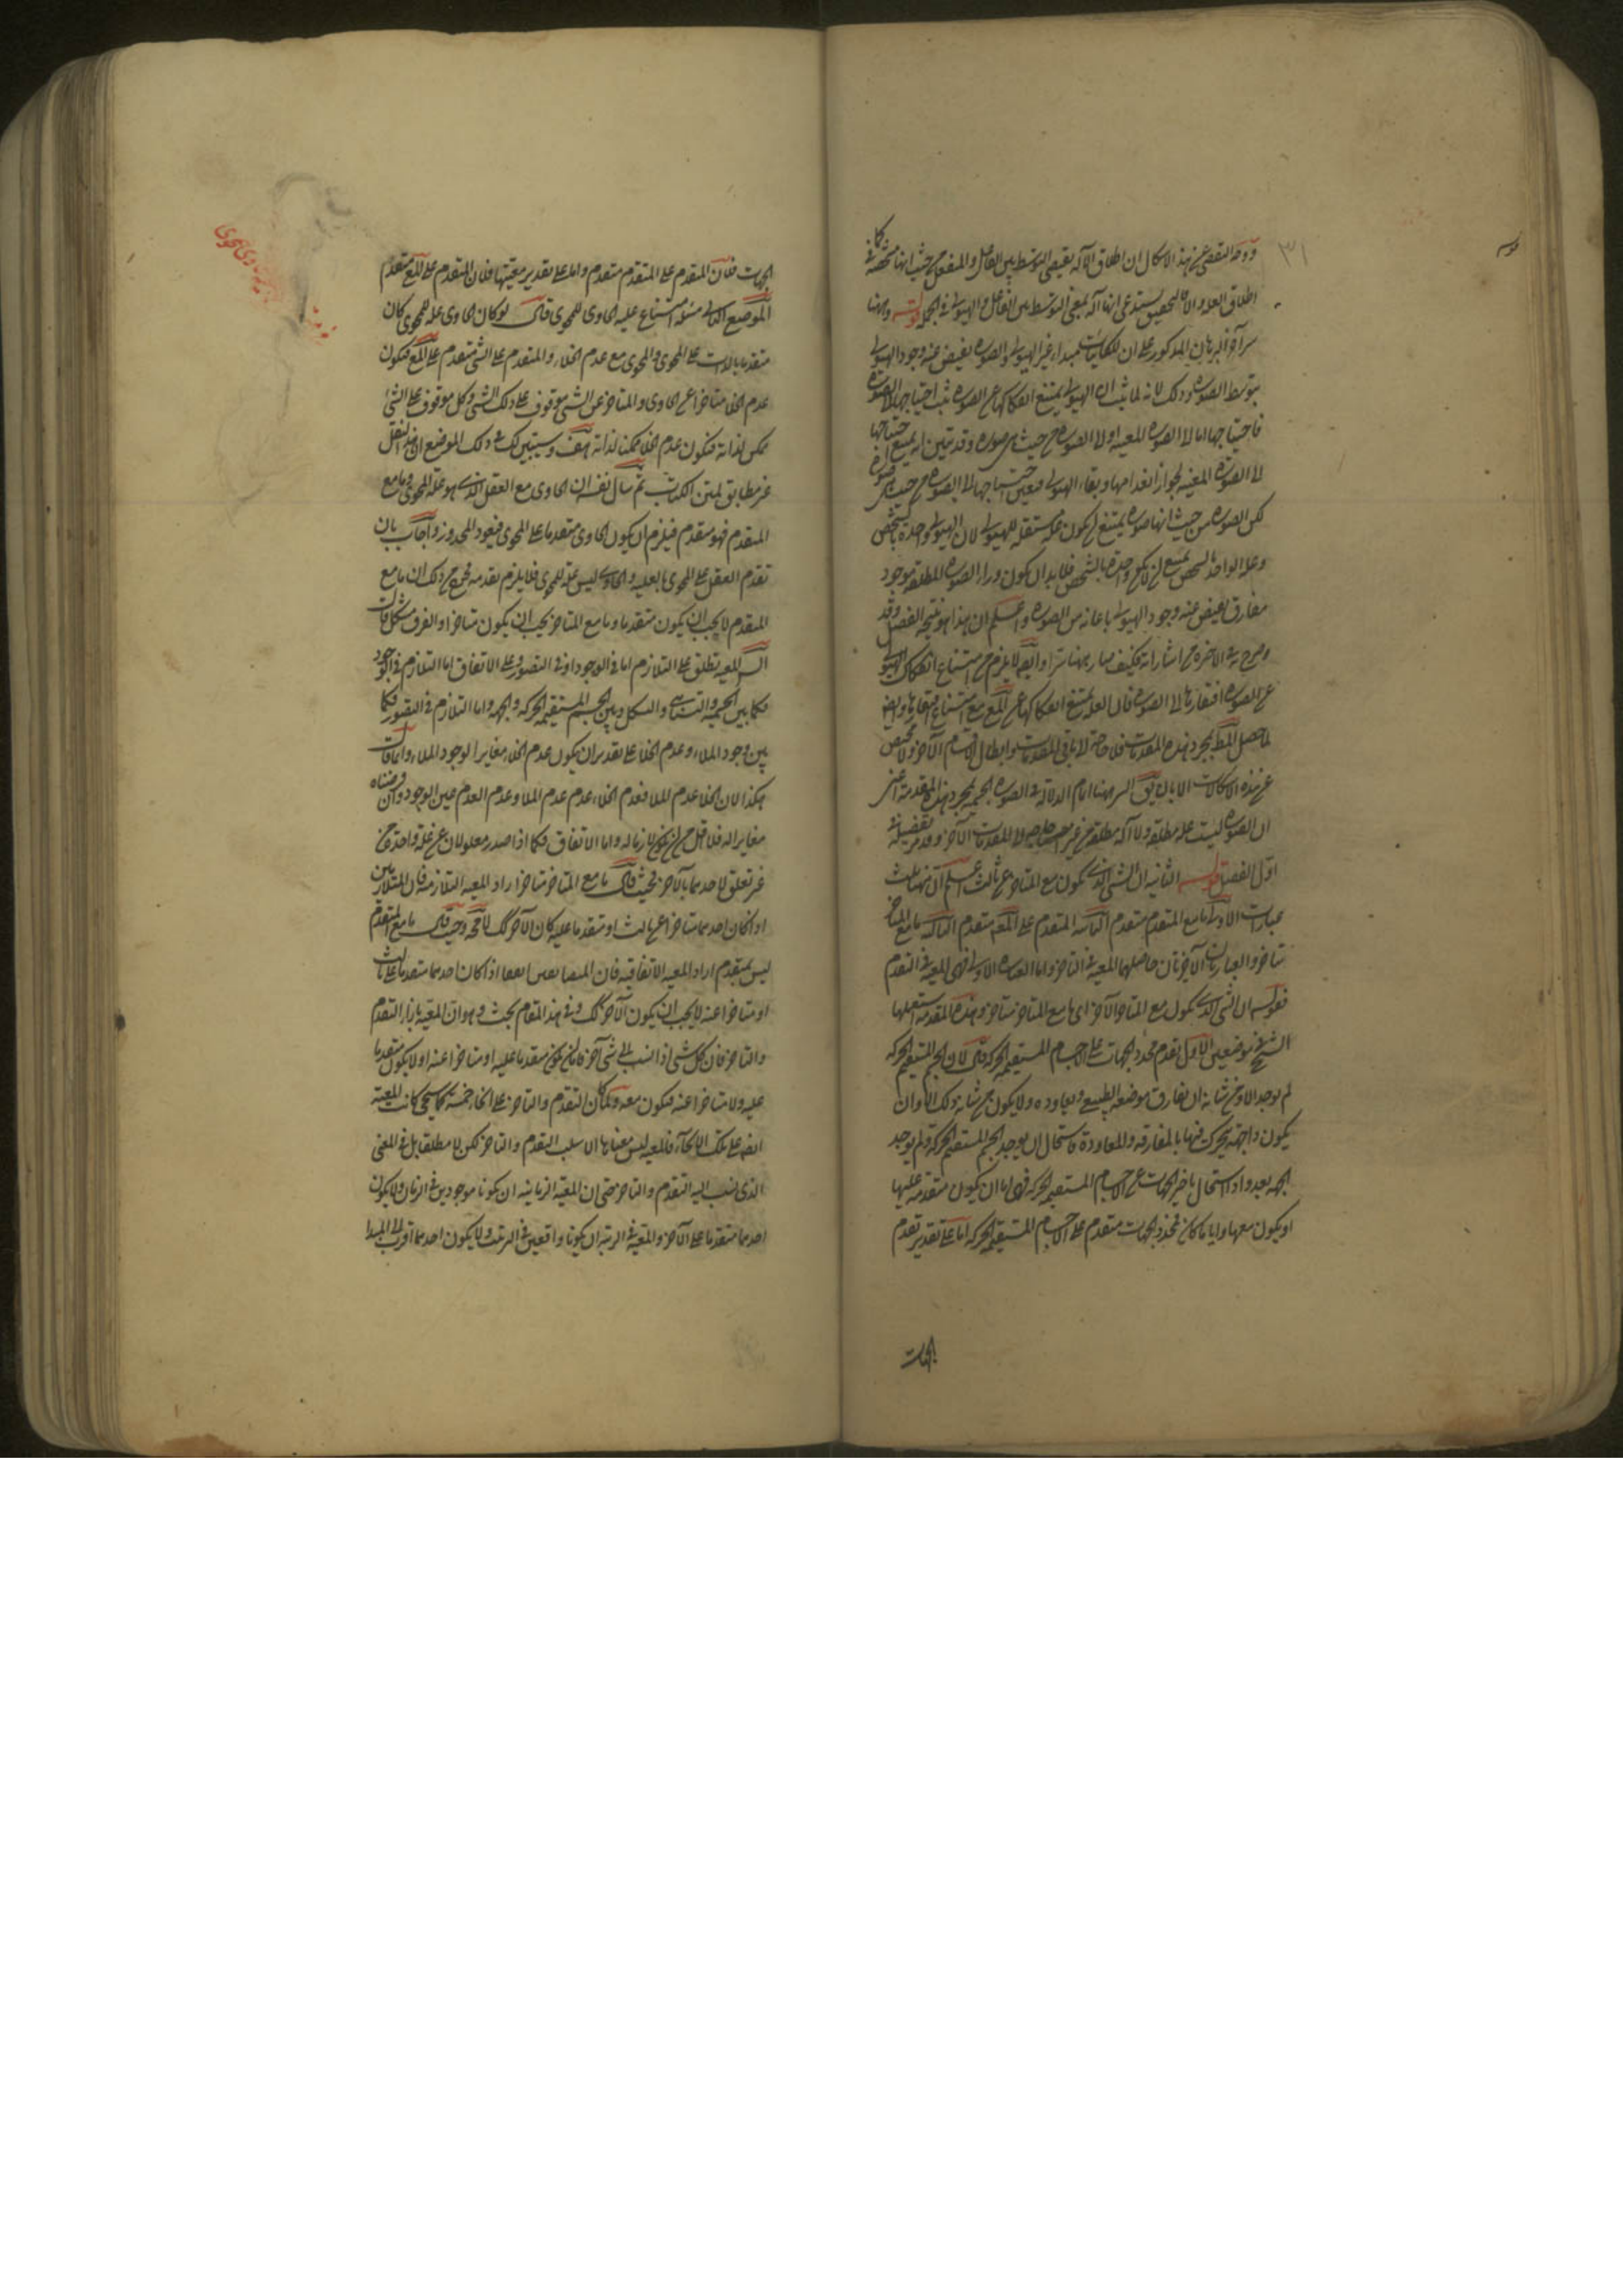 ووجه التفصي عن هذا الاشكال ان اطلاق الآلة يقتضى التوسط بين الفاعل والمنفعل من حيث انها مشخصة فكما فى
اطلاق العلة والا فالتحقيق يستدعى انها آلة بمعنى التوسط بين الفاعل والهيولى فى الجملة قوله وههنا
سر آخر البرهان المذكور على ان للكائنات مبداء غير الهيولى والصورة يفيض عنه وجود الهيولى
بتوسط الصورة وذلك لانه لما ثبت ان الهيولى يمتنع انفكاكها عن الصورة ثبت احتياجها الى الصورة
فاحتياجها اما الى الصورة المعينة او الى الصورة من حيث هى صورة وقد تبين انه يمتنع احتياجها
الى الصورة المعينة لجواز انعدامها وبقاء الهيولى فتعين احتياجها الى الصورة من حيث هى صورة
لكن الصورة من حيث انها صورة يمتنع ان يكون علة مستقلة للهيولى لان الهيولى واحدة بالشخص
وعلة الواحد بالشخص يمتنع ان لا يكون واحدة بالشخص فلا بد ان يكون وراء الصورة المطلقة موجود
مفارق يفيض عنه وجود الهيولى باعانة من الصورة واعلم ان هذا هو نتيجة الفصل وقد
صرح به فى الآخرة من اشاراته فكيف صار ههنا سرا وايضا لا يلزم من امتناع انفكاك الهيولى
عن الصورة افتقارها الى الصورة فان العلة يمتنع انفكاكها عن المع مع امتناع افتقارها وايضا
لما حصل المط بمجرد هذه المقدمات فلا حاجة الى باقى المقدمات وابطال الاقسام الآخر ولا مخيص
عن هذه الاشكالات الا بان يق السر ههنا اتمام الدلالة فى الصورة الجسمية بمجرد هذه المقدمة اعنى
ان الصورة ليست علة مطلقة ولا آلة مطلقة من غير احتياج الى المقدمات الآخر وقد مر تفصيله فى
اول الفصل قوله الثانية ان الشى الذى يكون مع المتاخر عن ثالث اعلم ان ههنا ثلث
عبارات الاولى ما مع المتقدم متقدم الثانية المتقدم على المع متقدم الثالثة ما مع المتاخر
متاخر والعبارتان الآخرتان حاصلهما المعية فى التاخر واما العبارة الاولى فهى المعية فى التقدم
فقوله ان الشى الذى يكون مع المتاخر الآخر اى ما مع المتاخر متاخر وهذه المقدمة استعملها
الشيخ فى موضعين الاول تقدم محدد الجهات على الاجسام المستقيمة الحركة قال لان الجسم المستقيم الحركة
لم يوجد الا ومن شانه ان يفارق موضعه الطبيعى ويعاوده ولا يكون من شانه ذلك الا وان
يكون ذا جهة يتحرك فيها بالمفارقة والمعاودة فاستحال ان يوجد الجسم المستقيم الحركة ولم يوجد
الجهة بعد واذا استحال تاخير الجهات عن الاجسام المستقيمة الحركة فهى اما ان يكون متقدمة عليها
او يكون معها وايا ما كان فمحدد الجهات متقدم على الاجسام المستقيمة الحركة اما على تقدير تقدم
الجهات
الجهات فلان المتقدم على المتقدم متقدم واما على تقدير معيتها فلان المتقدم على المع متقدم
الموضع الثانى مسئلة امتناع علية الحاوى للمحوى قال لو كان الحاوى علة للمحوى كان
متقدما بالذات على المحوى والمحوى مع عدم الخلاء والمتقدم على الشى متقدم على المع فيكون
عدم الخلاء متاخرا عن الحاوى والمتاخر عن الشى موقوف على ذلك الشى وكل موقوف على الشى
ممكن لذاته فيكون عدم الخلاء ممكنا لذاته هف وسيتبين لك فى ذلك الموضع ان هذا النقل
غير مطابق لمتن الكتاب ثم سال نفسه ان الحاوى مع العقل الذى هو علة المحوى وما مع
المتقدم فهو متقدم فيلزم ان يكون الحاوى متقدما على المحوى فيعود المحذور واجاب بان
تقدم العقل على المحوى بالعلية والحاوى ليس علة للمحوى فلا يلزم تقدمه فخرج من ذلك ان ما مع
المتقدم لا يجب ان يكون متقدما وما مع المتاخر يجب ان يكون متاخرا والفرق مشكل قال
الش المعية تطلق على التلازم اما فى الوجود او فى التصور وعلى الاتفاق اما التلازم فى الوجود
فكما بين الجسمية والتناهى والشكل وبين الجسم المستقيم الحركة والجهة واما التلازم فى التصور فكما
بين وجود الملاء وعدم الخلاء على تقدير ان يكون عدم الخلاء مغايرا لوجود الملاء وانما قال
هكذا لان الخلاء عدم الملاء فعدم الخلاء عدم عدم الملاء وعدم العدم عين الوجود وان فرضناه
مغايرا له فلا اقل من ان يكون لازما له واما الاتفاق فكما اذا صدر معلولان عن علة واحدة من
غير تعلق لاحدهما بالآخر فحيث قال ما مع المتاخر متاخر اراد المعية التلازمية فان المتلازمين
اذا كان احدهما متاخرا عن ثالث او متقدما عليه كان الآخر كك لا محة وحيث قال ما مع المتقدم
ليس بمتقدم اراد المعية الاتفاقية فان المتصاحبين اتفاقا اذا كان احدهما متقدما على ثالث
او متاخرا عنه لا يجب ان يكون الآخر كك وفى هذا المقام بحث وهو ان المعية بازاء التقدم
والتاخر فان كل شى اذا انسب الى شى آخر فاما ان يكون متقدما عليه او متاخرا عنه او لا يكون متقدما
عليه ولا متاخرا عنه فيكون معه ولما كان التقدم والتاخر على انحاء خمسة كما سيجى كانت المعية
ايضا على تلك الانحاء فالمعية ليس معناها الا سلب التقدم والتاخر لكن لا مطلقا بل فى المعنى
الذى نسب اليه التقدم والتاخر حتى ان المعية الزمانية ان يكونا موجودين فى الزمان ولا يكون
احدهما متقدما على الآخر والمعية فى الرتبة ان يكونا واقعين فى الرتبة ولا يكون احدهما اقرب الى المبدا